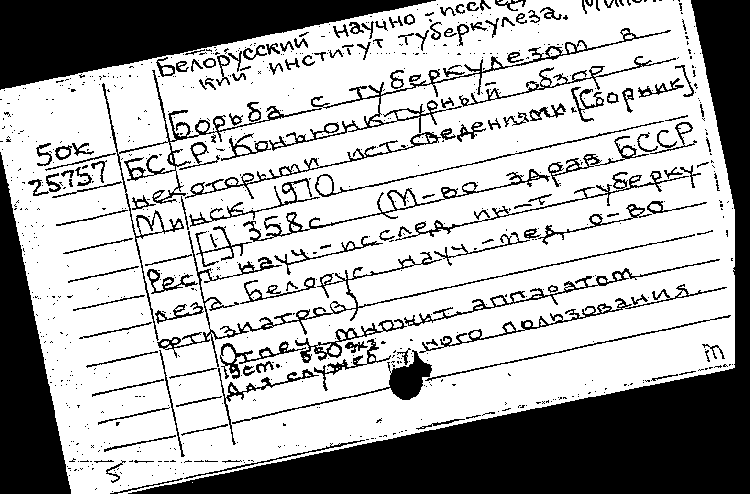 Белорусский научно-исслед
кий институт туберкулеза.
Борьба с туберкулезом в
50к
25757
БССР. Конъюнктурный обзор с
некоторыми ист. сведениями. [Сборник].
Минск, 1970.
[1], 358с. (М-во здрав. БССР.
Респ. науч.-исслед. ин-т туберку-
леза. Белорус. науч.-мед. о-во
фтизиатров)
Отпеч. множит. аппаратом
550 экз.
Для служеб ного пользования.
т
5